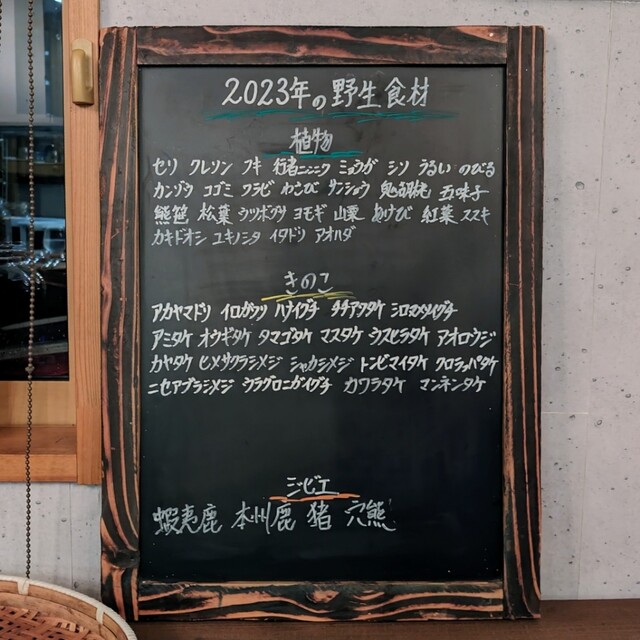 2023年の野生食材
植物
セリ クレソン フキ 行者ニンニク ミョウガ シソ うるい のびる
カンゾウ コゴミ ワラビ わさび サンショウ 鬼胡桃 五味子
熊笹 松葉 ウツボグサ ヨモギ 山栗 あけび 紅葉 ススキ
カキドオシ ユキノシタ イタドリ アオハダ
きのこ
アカヤマドリ イロガワリ ハナイグチ チチアワタケ シロヌメリイグチ
アミタケ オウギタケ タマゴタケ マスタケ ウスヒラタケ アオロウジ
カヤタケ ヒメサクラシメジ シャカシメジ トンビマイタケ クロラッパタケ
ニセアブラシメジ ウラグロニガイグチ カワラタケ マンネンタケ
ジビエ
蝦夷鹿 本州鹿 猪 穴熊